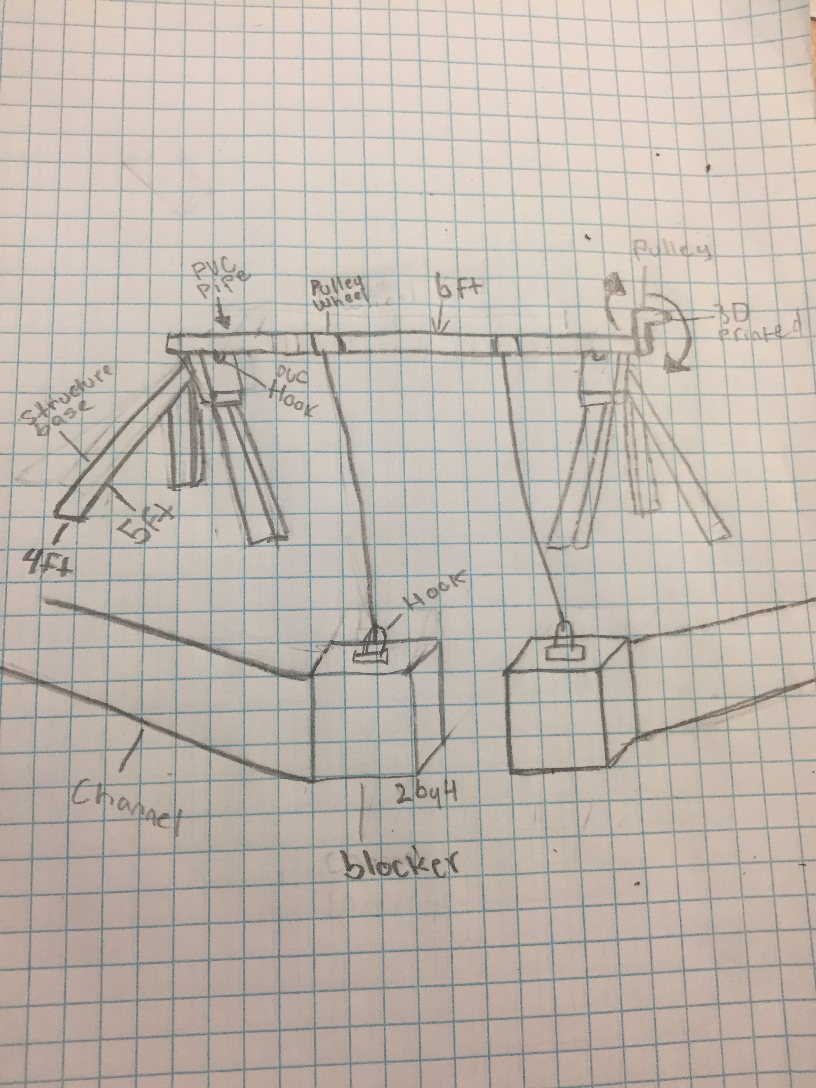 Pulley
PVC
pipe
Pulley
wheel
6ft
3D
printed
PVC
Hook
Structure
base
5ft
4ft
Hook
Channel
2by4
blocker